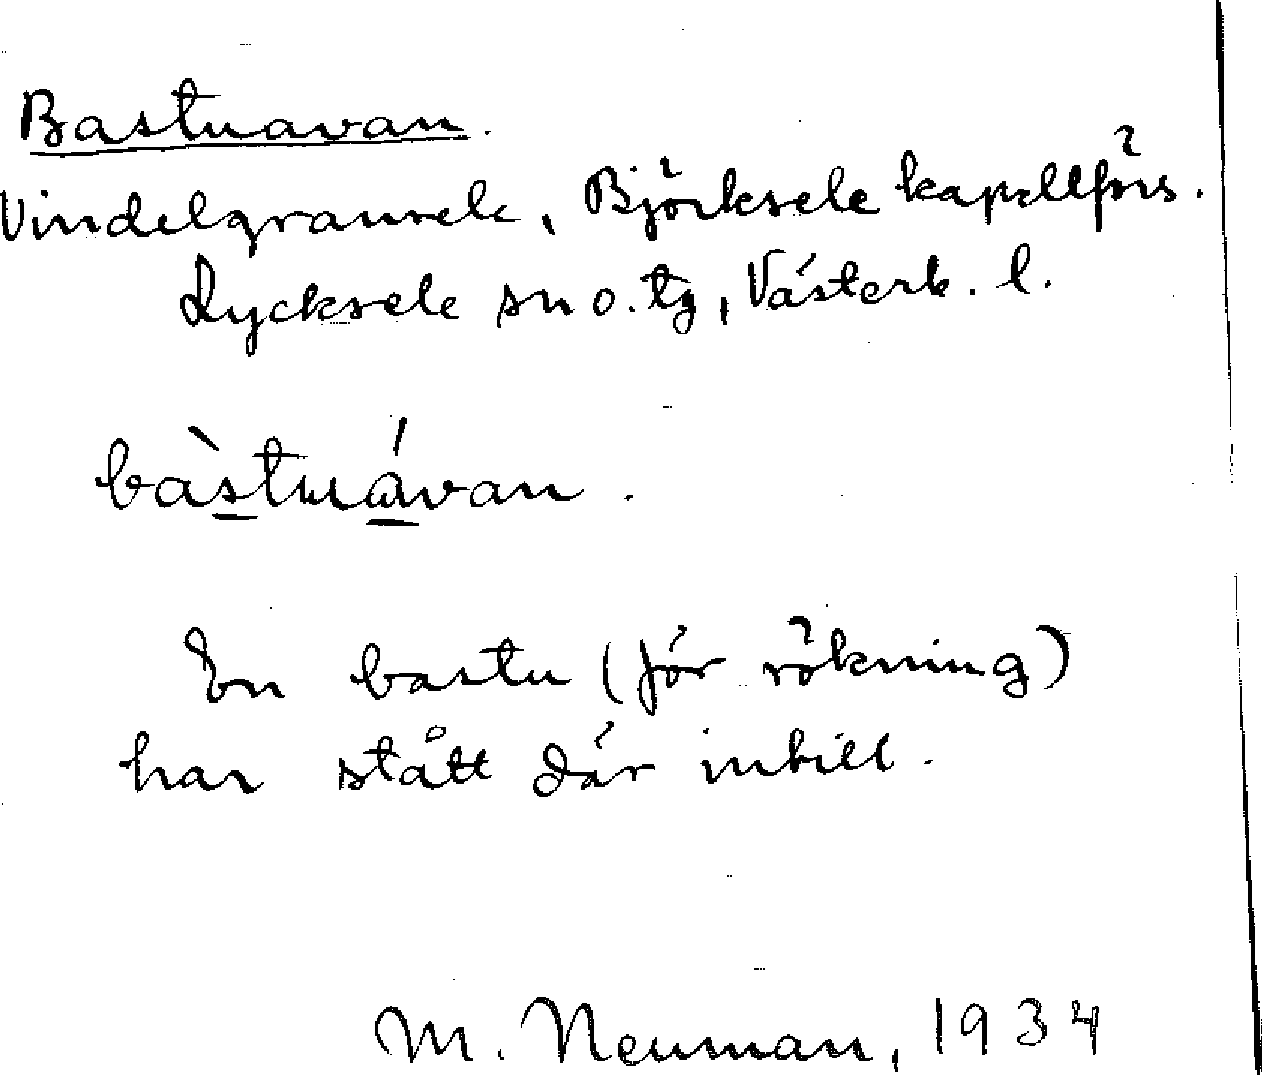 Bastuavan.
Vindelgransele, Björksele kapellförs.
Lycksele sn o. tg, Västerb. l.
bàstuávan.
En bastu (för rökning)
har stått där intill.
M. Neuman, 1934